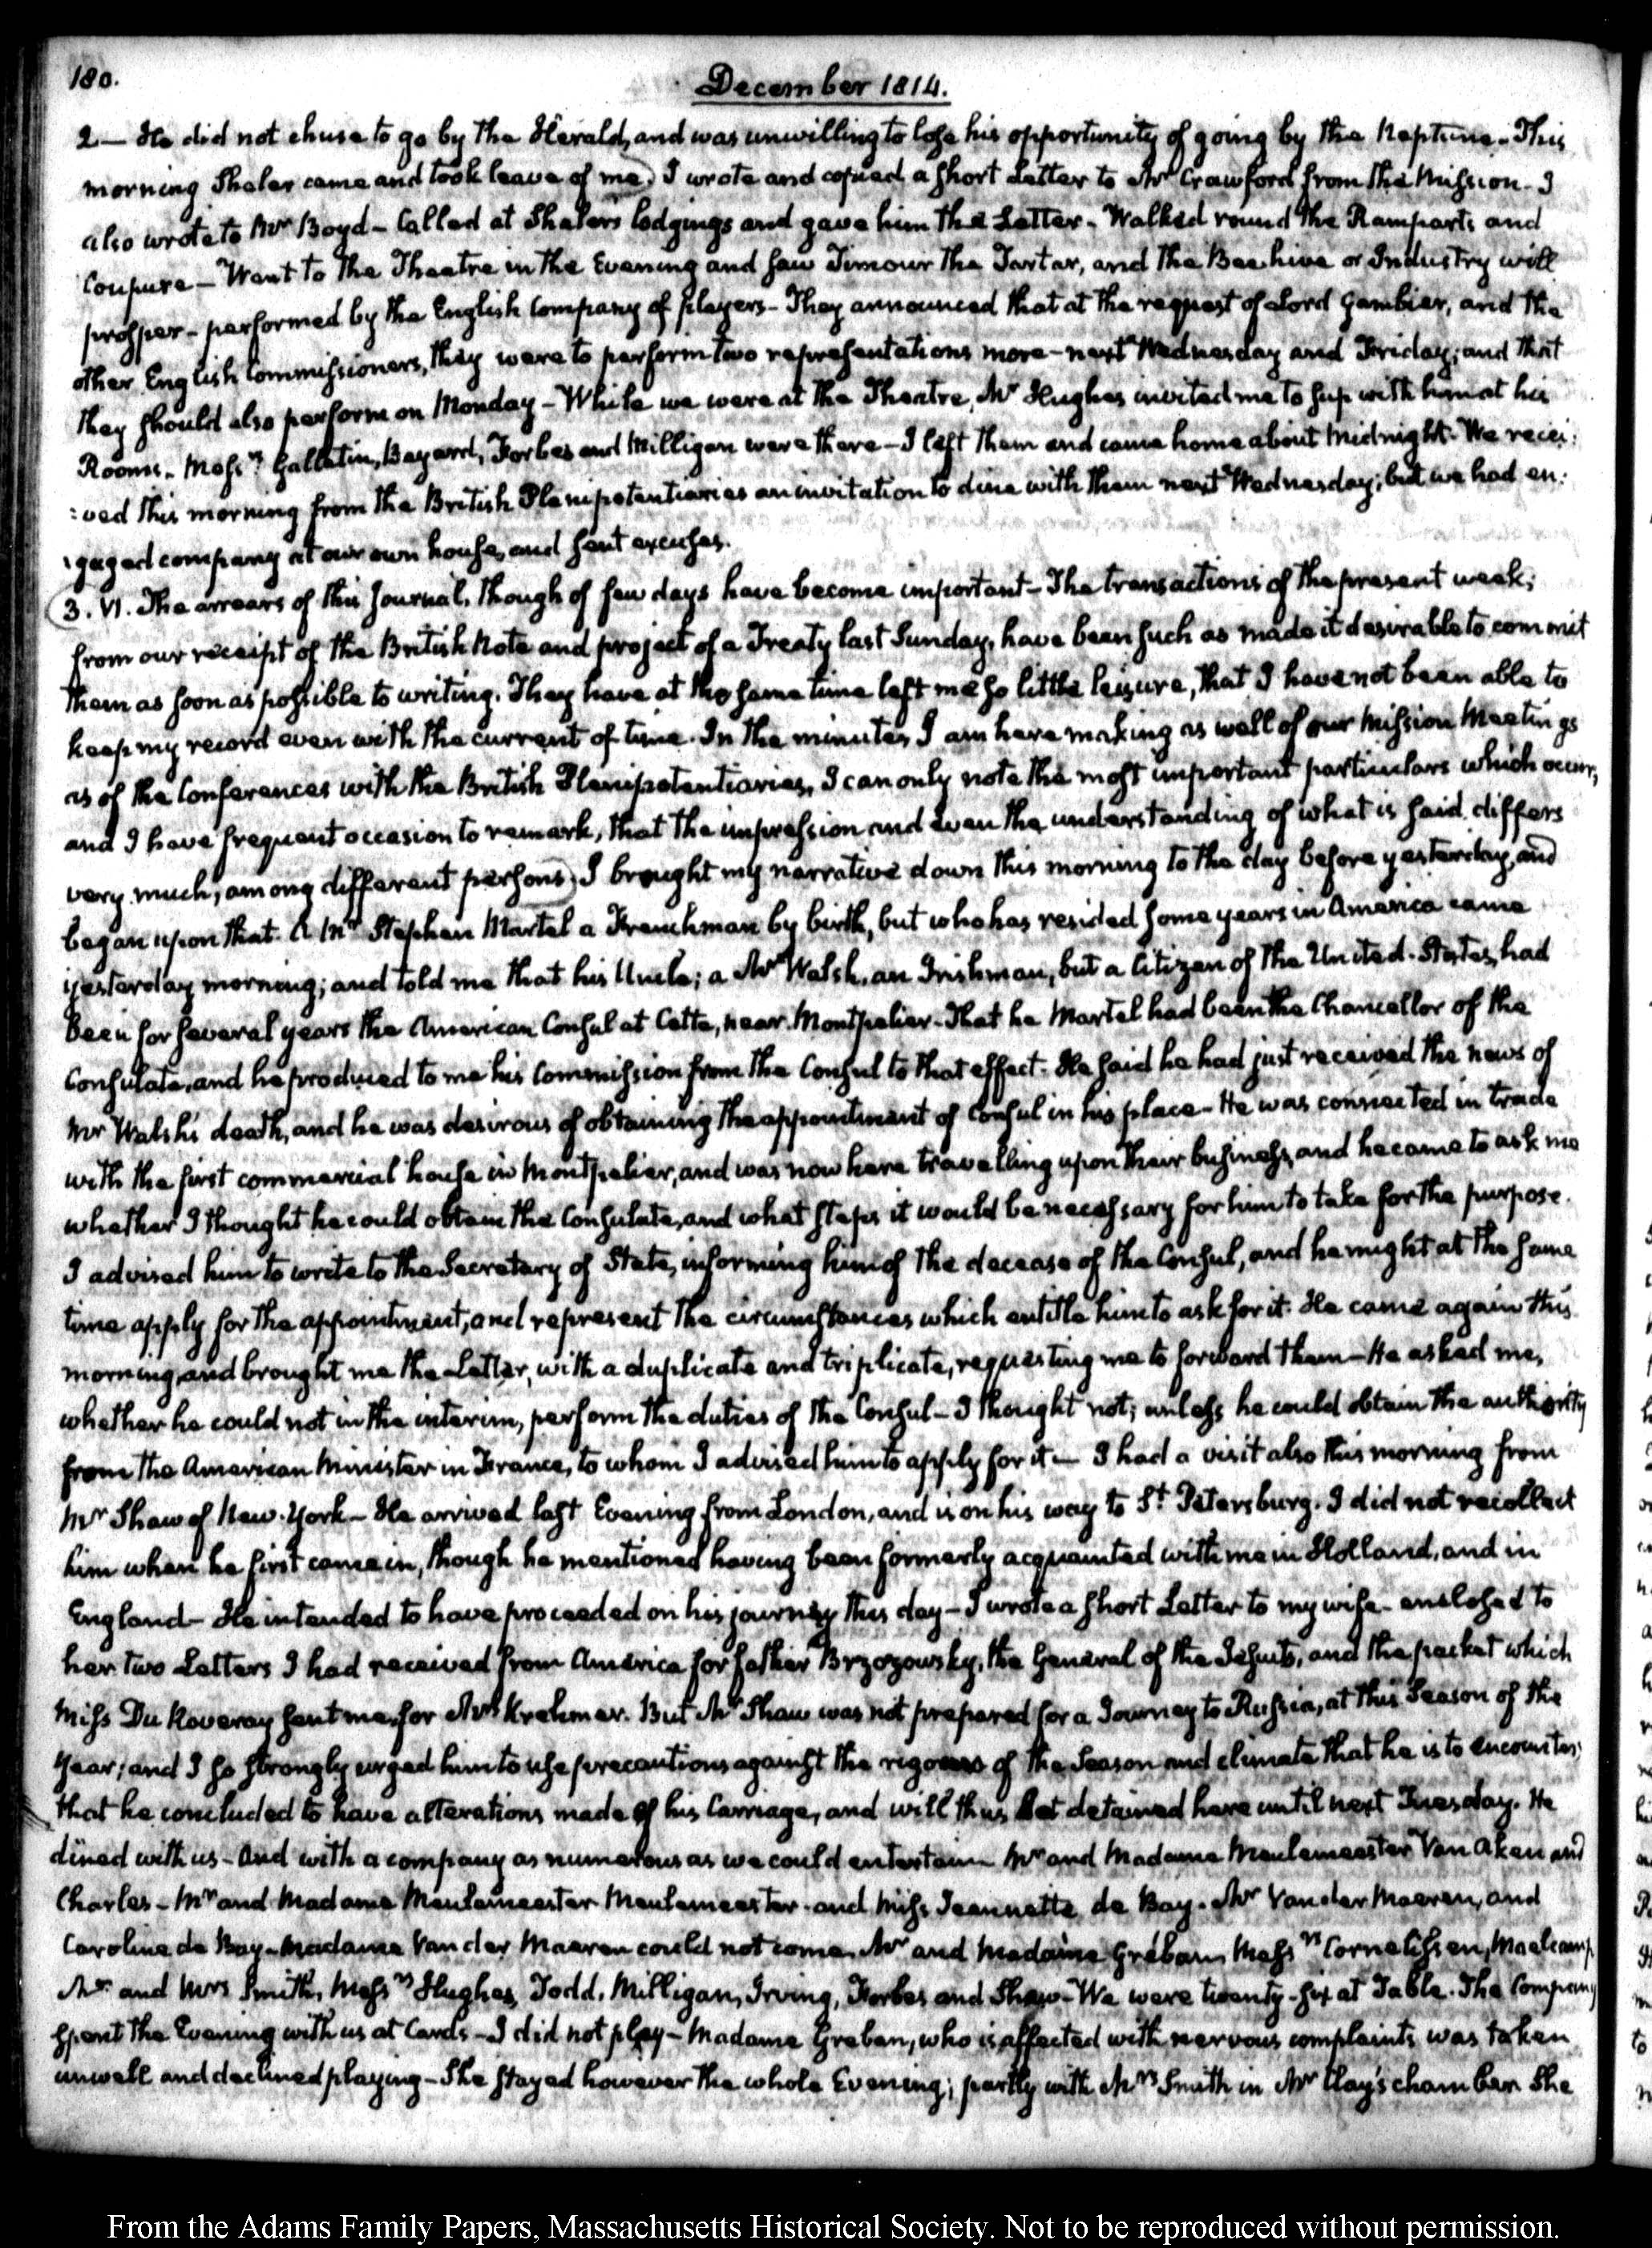 180.
December 1814.
2 — He did not chuse to go by the Herald, and was unwilling to lose his opportunity of going by the Neptune. This
morning Shaler came and took leave of me. I wrote and copied a short Letter to Mr Crawford from the Mission. I
also wrote to Mr Boyd — Called at Shaler's lodgings and gave him the Letter. Walked round the Ramparts and
Coupure — Went to the Theatre in the Evening and saw Timour the Tartar, and the Beehive or Industry will
prosper — performed by the English Company of players — They announced that at the request of Lord Gambier, and the
other English Commissioners, they were to perform two representations more — next Wednesday and Friday; and that
they should also perform on Monday — While we were at the Theatre, Mr Hughes invited me to sup with him at his
Rooms. Messrs Gallatin, Bayard, Forbes and Milligan were there — I left them and came home about midnight. We recei:
:ved this morning from the British Plenipotentiaries an invitation to dine with them next Wednesday; but we had en:
:gaged company at our own house, and sent excuses.
3. VI. The arrears of this Journal, though of few days have become important — The transactions of the present week;
from our receipt of the British Note and project of a Treaty last Sunday, have been such as made it desirable to commit
them as soon as possible to writing. They have at the same time left me so little leizure, that I have not been able to
keep my record even with the current of time. In the minutes I am here making as well of our Mission Meetings
as of the Conferences with the British Plenipotentiaries, I can only note the most important particulars which occur,
and I have frequent occasion to remark, that the impression and even the understanding of what is said, differs
very much, among different persons. I brought my narrative down this morning to the day before yesterday, and
began upon that. A Mr Stephen Martel a Frenchman by birth, but who has resided some years in America came
yesterday morning; and told me that his Uncle; a Mr Walsh, an Irishman, but a Citizen of the United-States, had
been for several years the American Consul at Cette, near Montpelier. That he Martel had been the Chancellor of the
Consulate, and he produced to me his Commission from the Consul to that effect. He said he had just received the news of
Mr Walsh's death, and he was desirous of obtaining the appointment of Consul in his place — He was connected in trade
with the first commercial house in Montpelier, and was now here travelling upon their business, and he came to ask me
whether I thought he could obtain the Consulate, and what steps it would be necessary for him to take for the purpose.
I advised him to write to the Secretary of State, informing him of the decease of the Consul, and he might at the same
time apply for the appointment, and represent the circumstances which entitle him to ask for it. He came again this
morning, and brought me the Letter, with a duplicate and triplicate, requesting me to forward them — He asked me,
whether he could not in the interim, perform the duties of the Consul — I thought not; unless he could obtain the authority
from the American Minister in France, to whom I advised him to apply for it — I had a visit also this morning from
Mr Shaw of New-York — He arrived last Evening from London, and is on his way to St Petersburg. I did not recollect
him when he first came in, though he mentioned having been formerly acquainted with me in Holland, and in
England — He intended to have proceeded on his journey this day — I wrote a short Letter to my wife — enclosed to
her two Letters I had received from America for father Brzozowsky, the General of the Jesuits, and the packet which
Miss Du Roveray sent me, for Mrs Krehmer. But Mr Shaw was not prepared for a Journey to Russia, at this Season of the
Year; and I so strongly urged him to use precautions against the rigours of the Season and climate that he is to encounter,
that he concluded to have alterations made of his Carriage, and will thus be detained here until next Tuesday. He
dined with us — And with a company as numerous as we could entertain Mr and Madame Meulemeester Van Aken and
Charles — Mr and Madame Meulemeester Meulemeester — and Miss Jeannette de Bay. Mr Van der Maeren, and
Caroline de Bay — Madame Van der Maeren could not come. Mr and Madame Greban, Messrs Cornelissen, Maelcamp
Mr and Mrs Smith, Messrs Hughes, Todd, Milligan, Irving, Forbes and Shaw — We were twenty-six at Table. The Company
spent the Evening with us at Cards — I did not play — Madame Greban, who is affected with nervous complaints was taken
unwell and declined playing — She stayed however the whole Evening; partly with Mrs Smith in Mr Clay's chamber. She
From the Adams Family Papers, Massachusetts Historical Society. Not to be reproduced without permission.